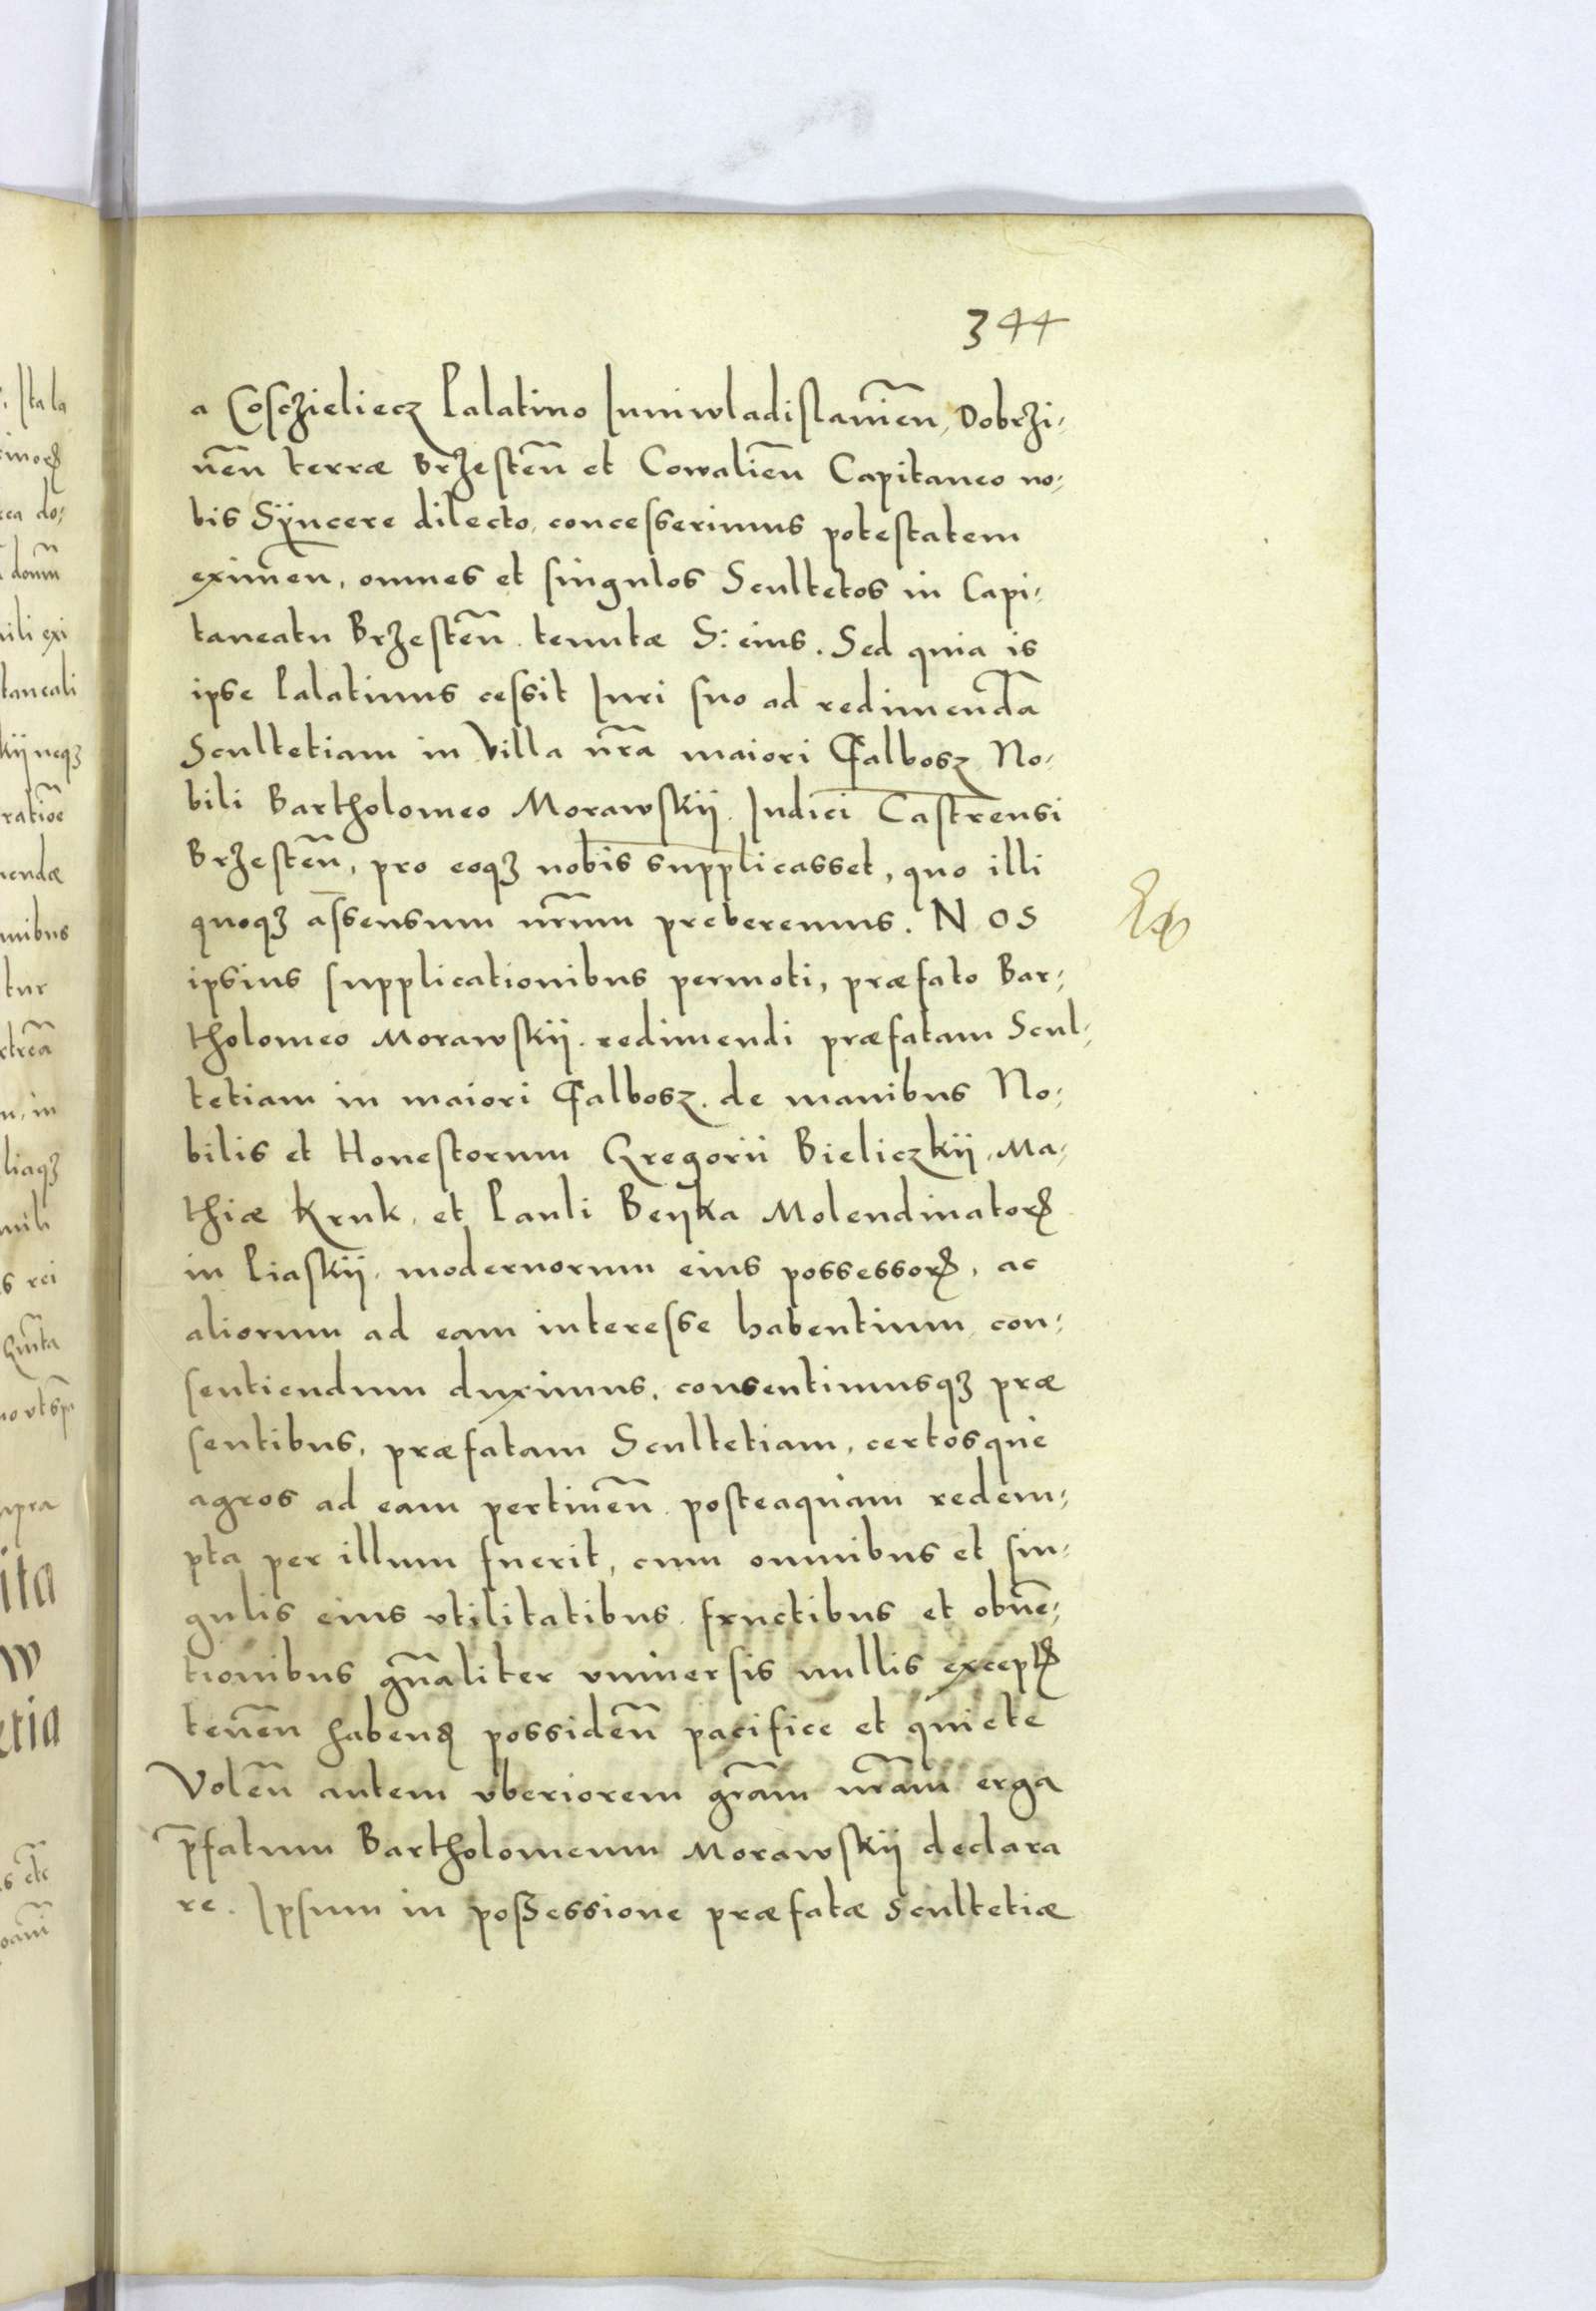 344
a Cosczieliecz Palatino Iuniwladislauień, Dobrzi:
neñ terræ Brzesteñ et Cowalieñ Capitaneo no:
bis Sÿncere dilecto, concesserimus potestatem
eximeñ, omnes et singulos Scultetos in Capi:
taneatu Brzesteñ. tenutæ S: eius. Sed quia is
ipse Palatinus cessit Iuri suo ad redimendã
Scultetiam in Villa nr̃a maiori Galbosz No:
bili Bartholomeo Morawskij. Iudici Castrensi
Brzesteñ, pro eoqꝫ nobis supplicasset, quo illi
quoqꝫ assensum nr̃um preberemus. NOS
ipsius supplicationibus permoti, præfato Bar:
tholomeo Morawskij. redimendi præfatam Scul:
tetiam in maiori Galbosz. de manibus No:
bilis et Honestorum Gregorii Bieliczkij, Ma:
thiæ Kruk, et Pauli Beÿka Molendinatorꝝ
in Piaskij, modernorum eius possessorꝝ, ac
aliorum ad eam interesse habentium con:
sentiendum duximus, consentimusqꝫ præ
sentibus, præfatam Scultetiam, certosque
agros ad eam pertineñ. posteaquam redem:
pta per illum fuerit, cum omnibus et sin:
gulis eius vtilitatibus. fructibus et obuẽ:
tionibus gñaliter vniuersis nullis exceptꝭ
teneñ habenꝭ possideñ pacifice et quiete
Voleñ autem vberiorem gr̃am nr̃am erga
p̃fatum Bartholomeum Morawskij declara
re. Ipsum in possessione præfatæ Scultetiæ